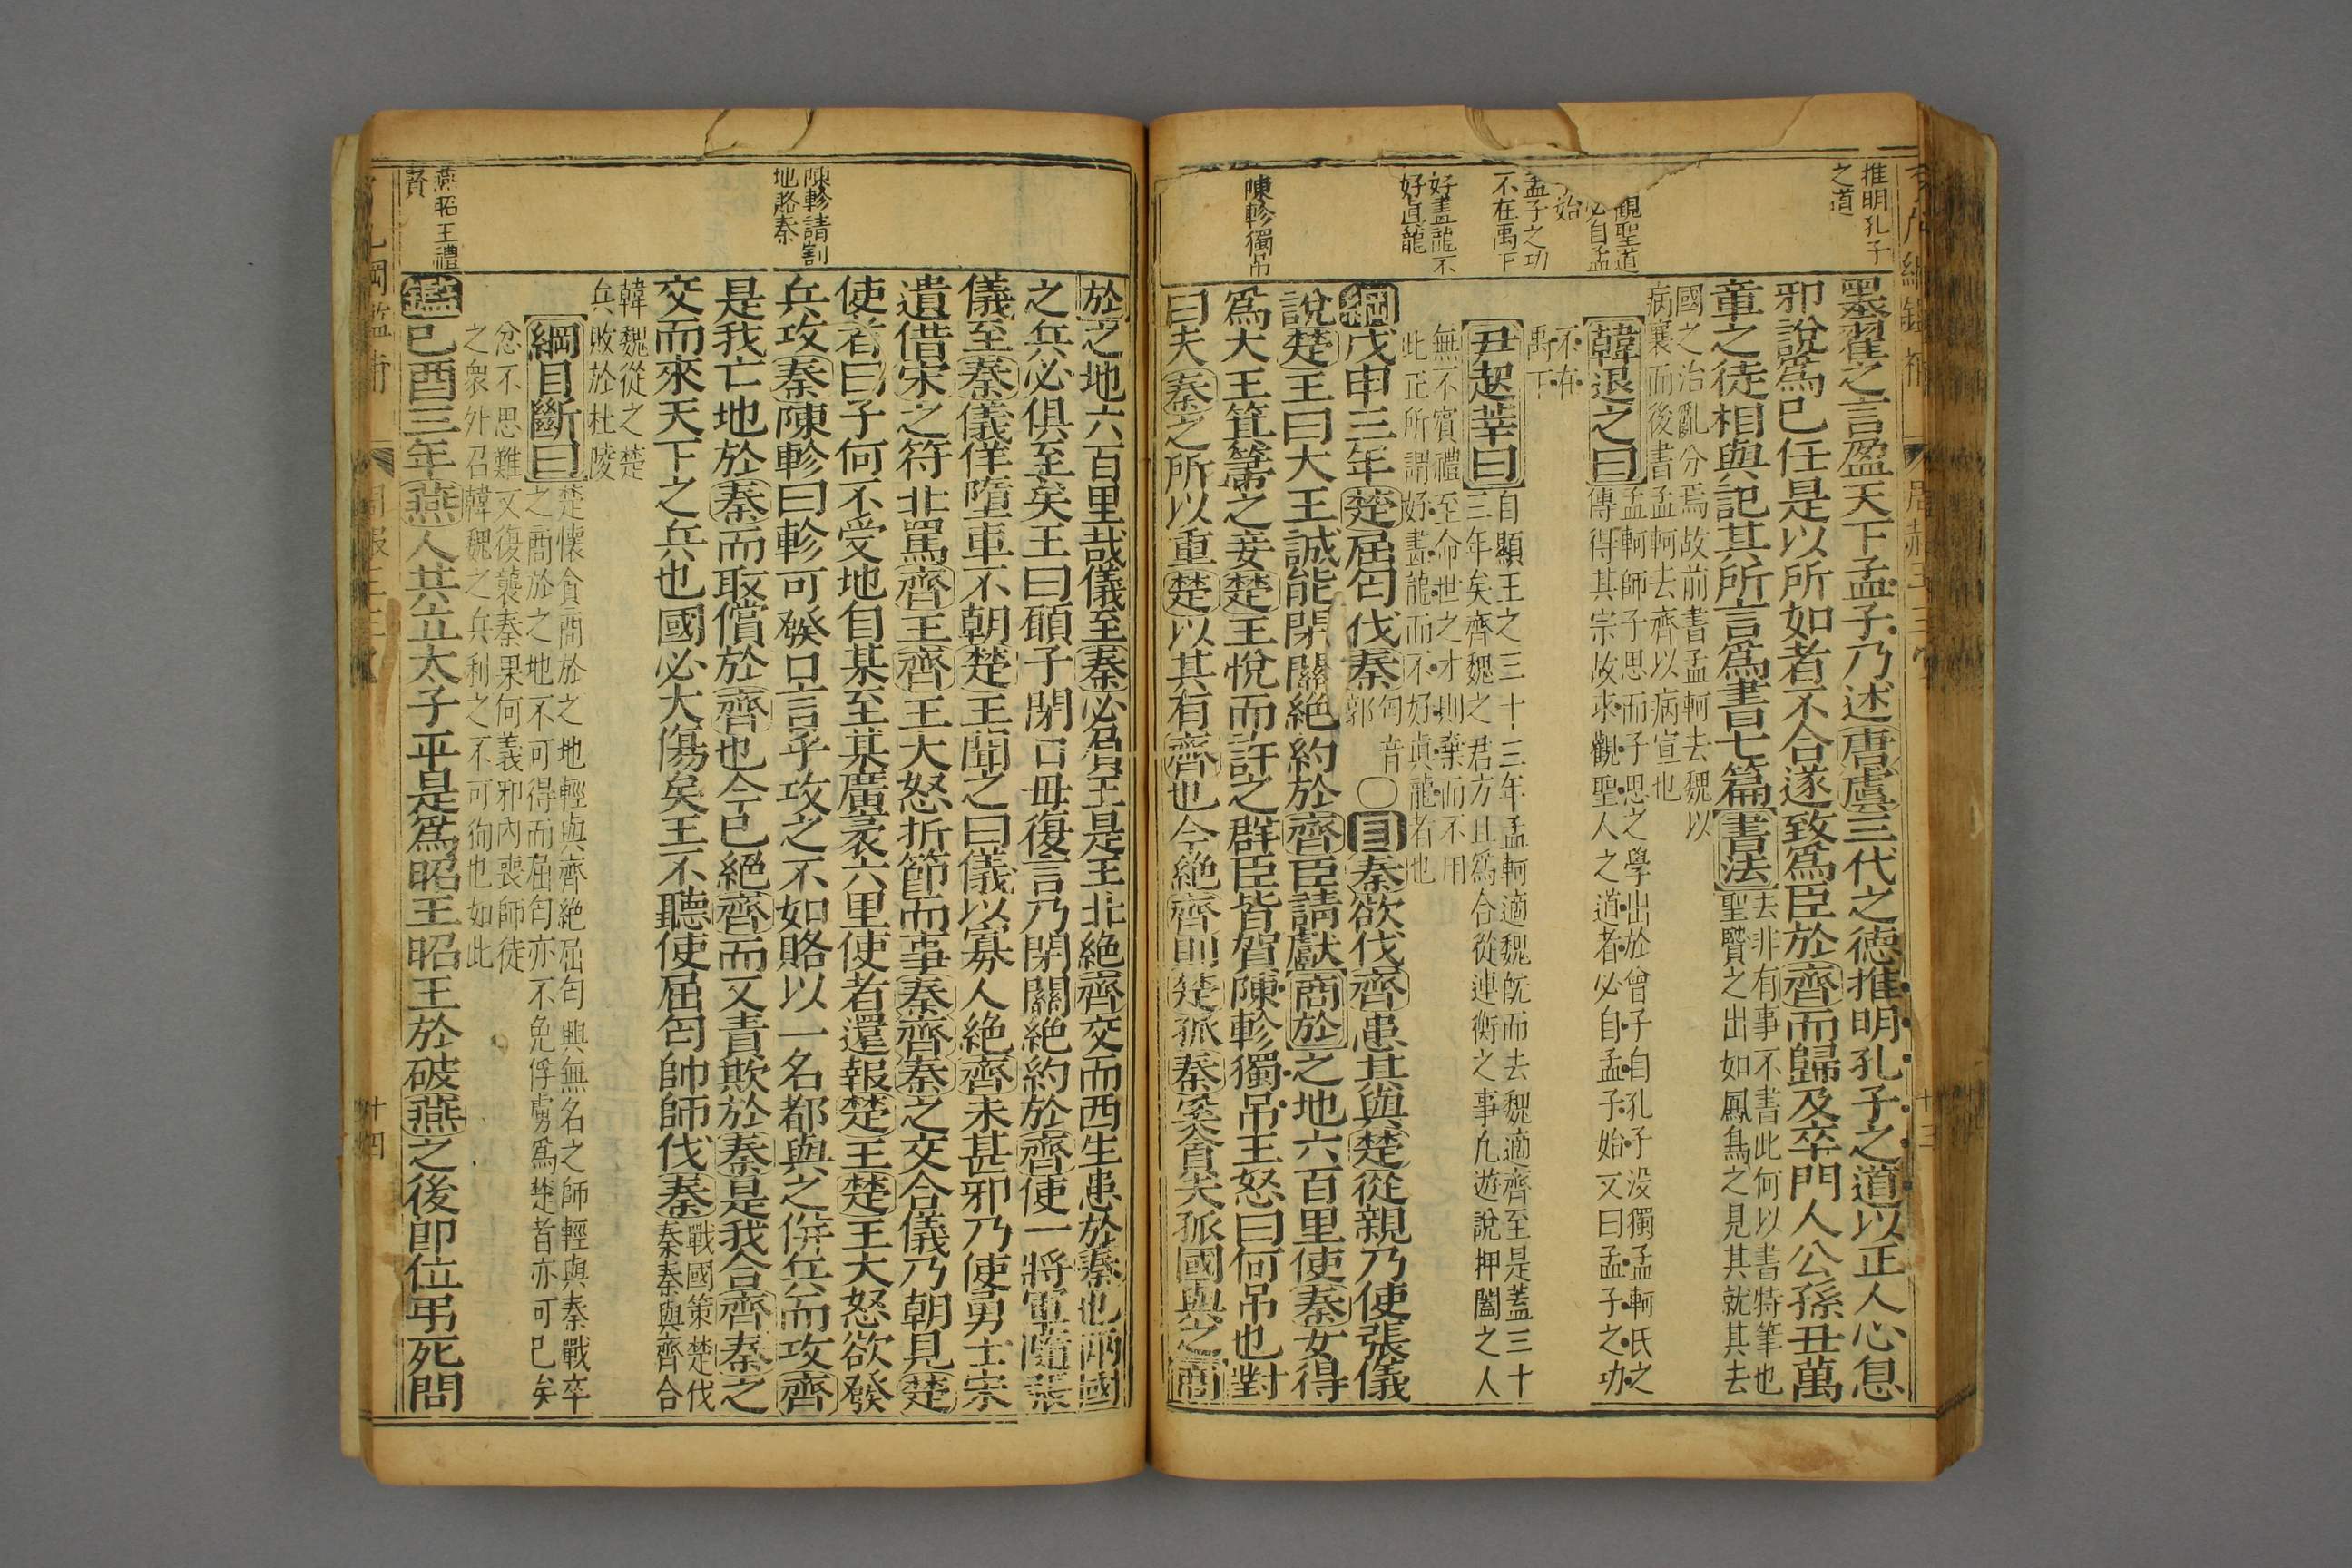 推明孔子
之道
觀聖道
必自孟
始
孟子之功
不在禹下
好畫龍不
好眞龍
陳軫獨吊
墨翟之言盈天下孟子乃述唐虞三代之德推明孔子之道以正人心息
邪說爲已任是以所如者不合遂致爲臣於齊而歸及卒門人公孫丑萬
章之徒相與記其所言爲書七篇書法去非有事不書此何以書特筆也
聖賢之出如鳳鳥之見其就其去
國之治亂分焉故前書孟軻去魏以
病襄而後書孟軻去齊以病宣也
韓退之曰孟軻師子思而子思之學出於曾子自孔子没獨孟軻氏之
傳得其宗故求觀聖人之道者必自孟子始又曰孟子之功
不在
禹下
尹起莘曰自顯王之三十三年孟軻適魏既而去魏適齊至是蓋三十
三年矣齊魏之君方且爲合從連衡之事凡遊說押闔之人
無不賓禮至命世之才則棄而不用
此正所謂好畫龍而不好眞龍者也
綱戊申三年楚屈匄伐秦匄音
郭〇目秦欲伐齊患其與楚從親乃使張儀
說楚王曰大王誠能閉關絶約於齊臣請獻商於之地六百里使秦女得
爲大王箕箒之妾楚王悅而許之群臣皆賀陳軫獨吊王怒曰何吊也對
曰夫秦之所以重楚以其有齊也今絶齊則楚孤秦奚貪夫孤國與之商
陳軫請割
地賂秦
燕昭王禮
賢
於之地六百里哉儀至秦必負王是王北絶齊交而西生患於秦也兩國
之兵必俱至矣王曰願子閉口毋復言乃閉關絶約於齊使一將軍隨張
儀至秦儀佯墮車不朝楚王聞之曰儀以寡人絶齊未甚邪乃使勇士宋
遺借宋之符北罵齊王齊王大怒折節而事秦齊秦之交合儀乃朝見楚
使者曰子何不受地自某至某廣袤六里使者還報楚王楚王大怒欲發
兵攻秦陳軫曰軫可發口言乎攻之不如賂以一名都與之併兵而攻齊
是我亡地於秦而取償於齊也今已絕齊而又責欺於秦是我合齊秦之
交而來天下之兵也國必大傷矣王不聽使屈匄帥師伐秦戰國策楚伐
秦秦與齊合
韓魏從之楚
兵敗於杜陵
綱目斷曰楚懷貪商於之地輕與齊絶屈匄興無名之師輕與秦戰卒
之商於之地不可得而屈匄亦不免俘虜爲楚者亦可已矣
忿不思難又復襲秦果何義邪內喪師徒
之衆外召韓魏之兵利之不可徇也如此
鑑己酉三年燕人共立太子平是爲昭王昭王於破燕之後卽位弔死問
十三
十四